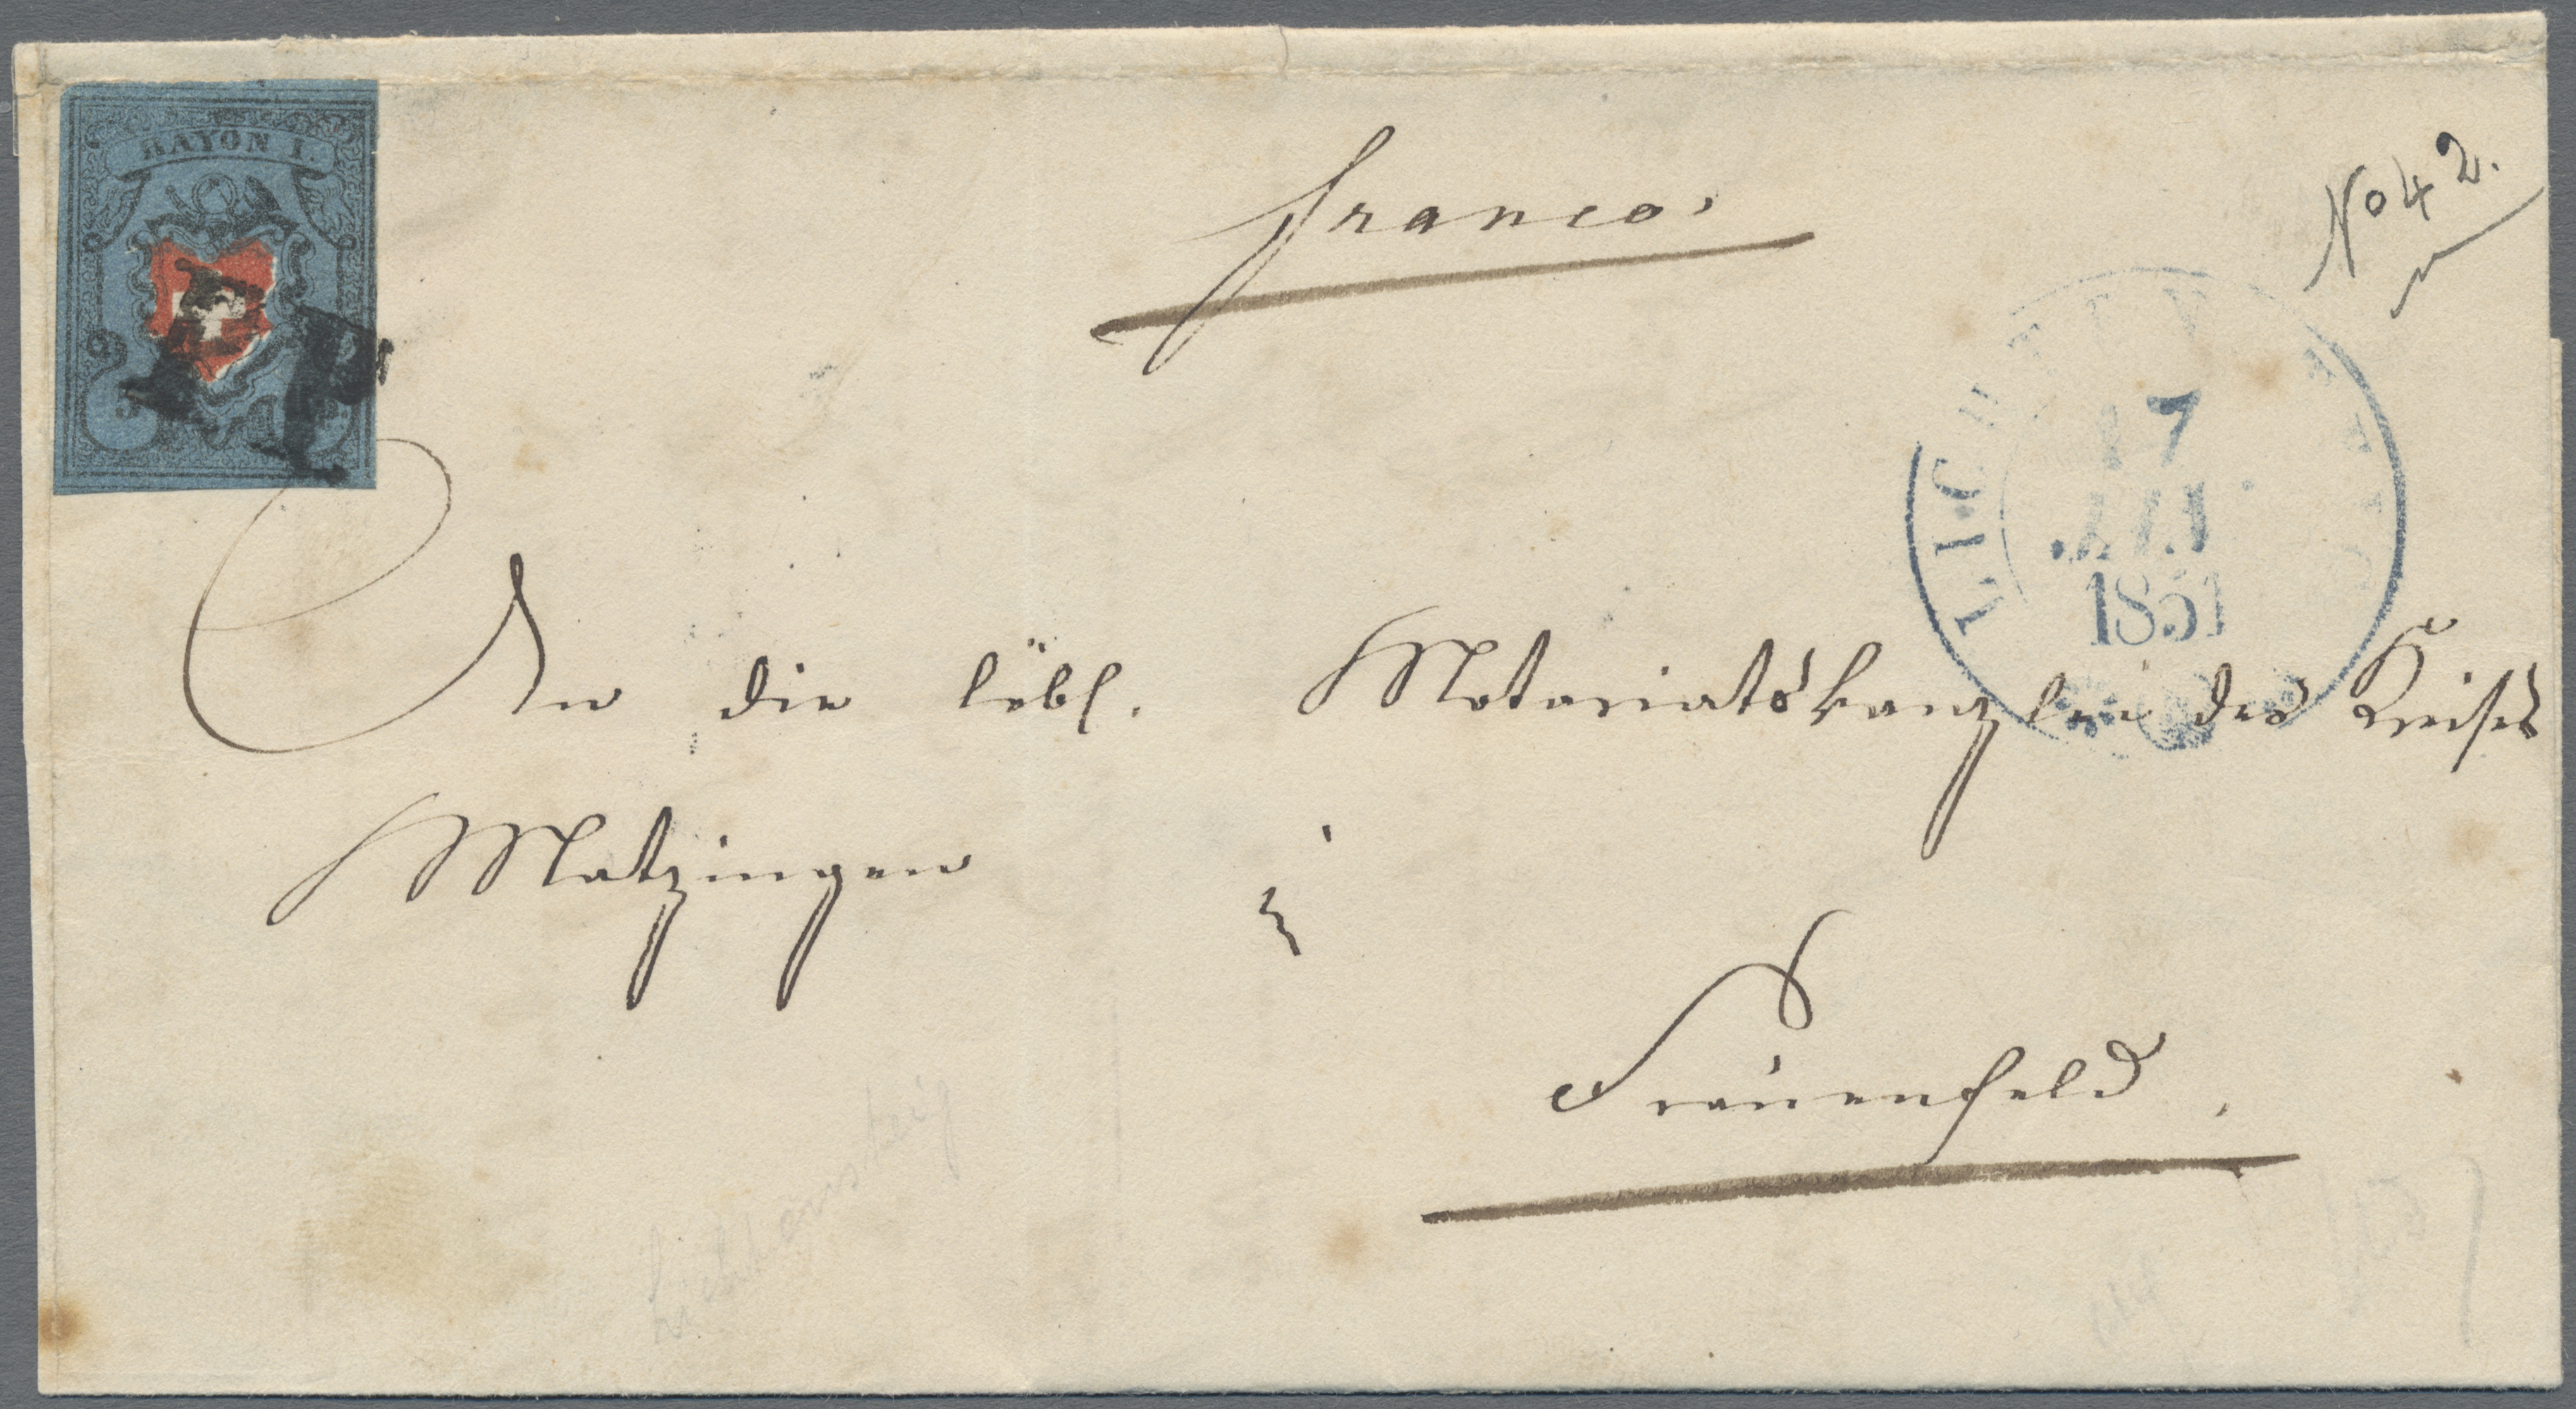 RAYON I.
franco.
No 42.
17
1851
An die löbl. Notariatskanzlei des Kreises
Matzingen
in
Frauenfeld.
Lichtensteig